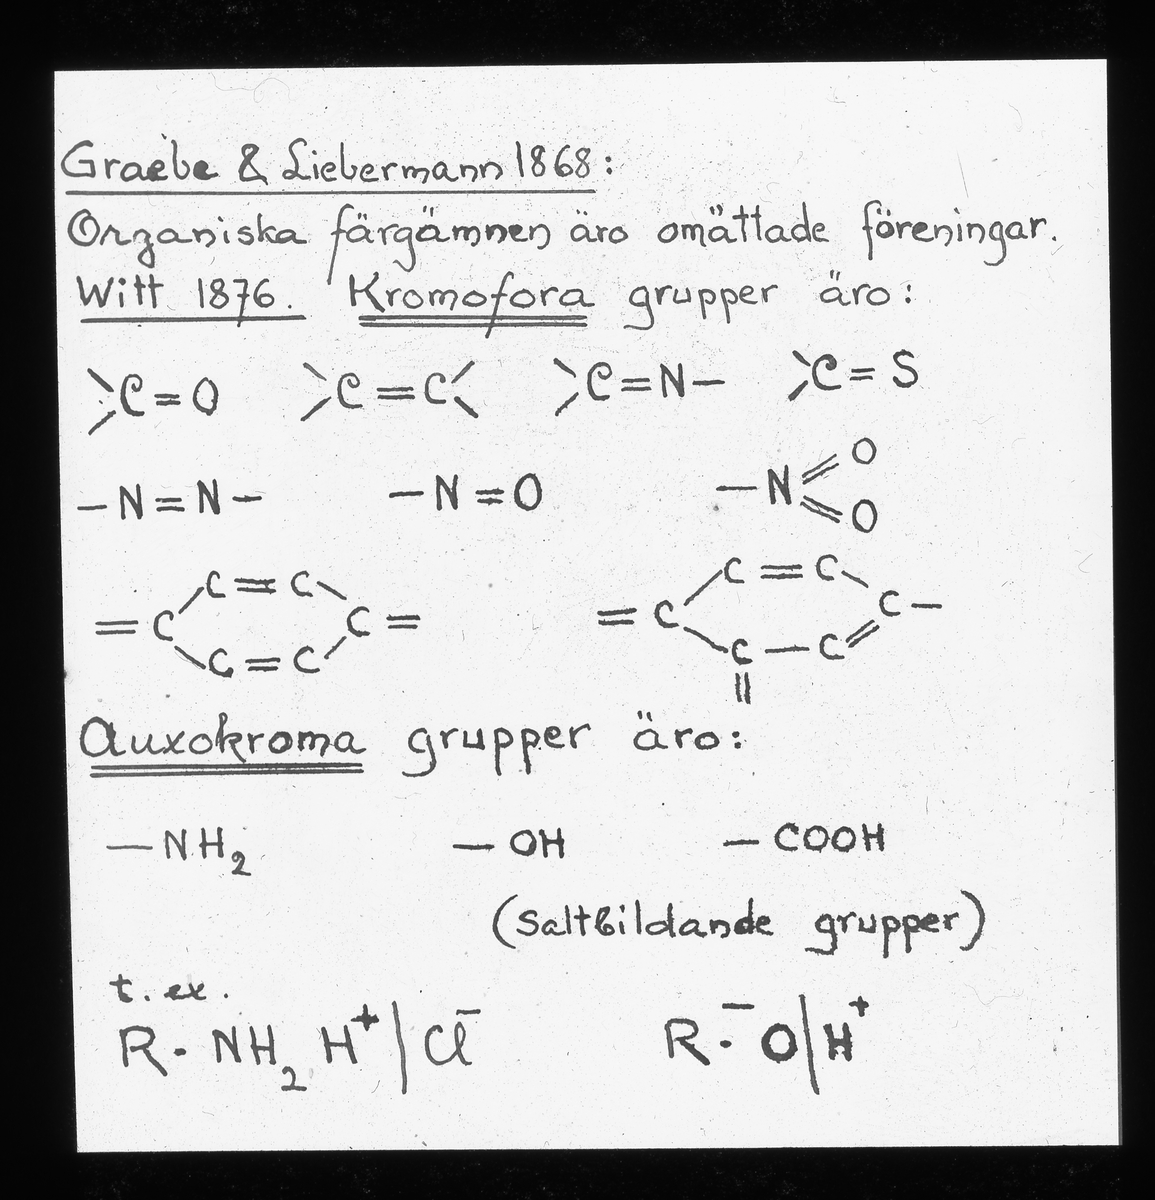 Graebe & Liebermann 1868:
Organiska färgämnen äro omättade föreningar.
Witt 1876. Kromofora grupper äro:
>C=O >C=C< >C=N– >C=S
–N=N– –N=O –N=O
=O
C=C C=C
=C C= =C C–
C=C C–C
||
Auxokroma grupper äro:
–NH₂ –OH –COOH
(Saltbildande grupper)
t. ex.
R·NH₂ H⁺|Cl⁻ R·⁻O|H⁺